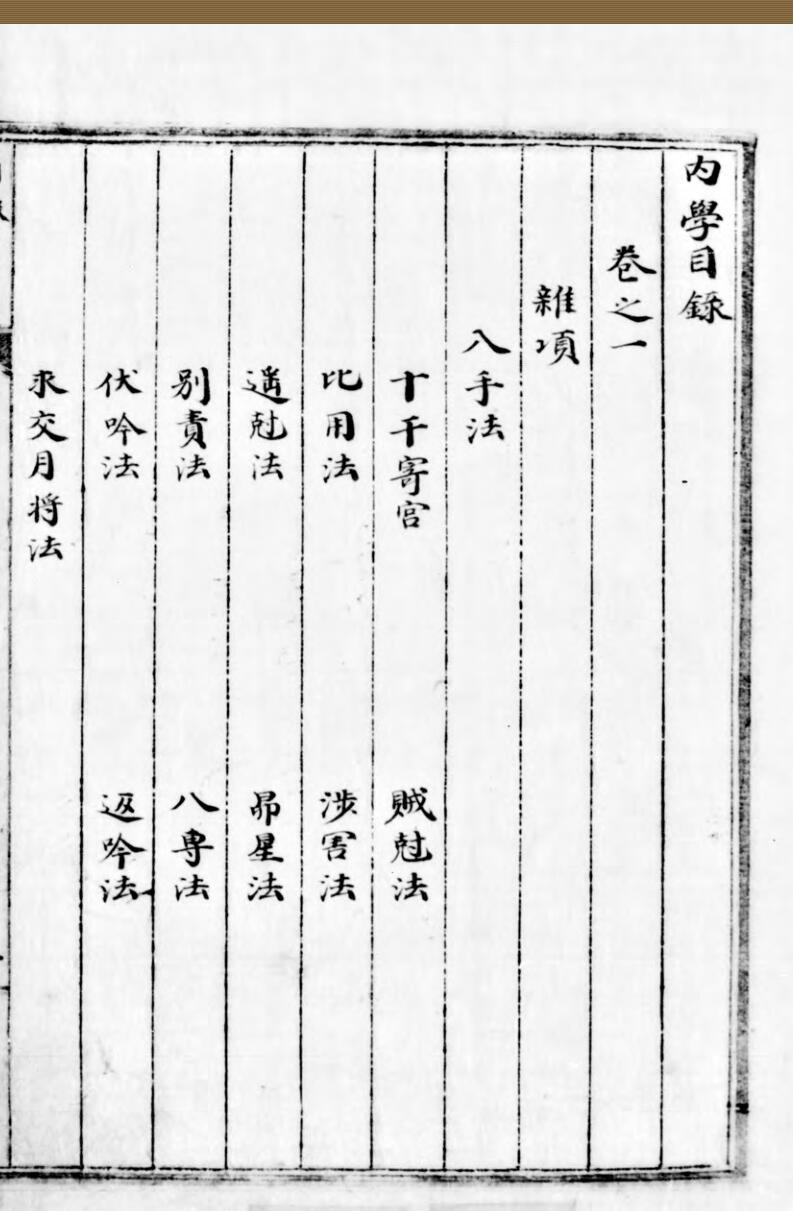 内學目錄
卷之一
雜項
八手法
十干寄宮 賊尅法
比用法 涉害法
遙尅法 昴星法
别責法 八專法
伏吟法 返吟法
求交月将法